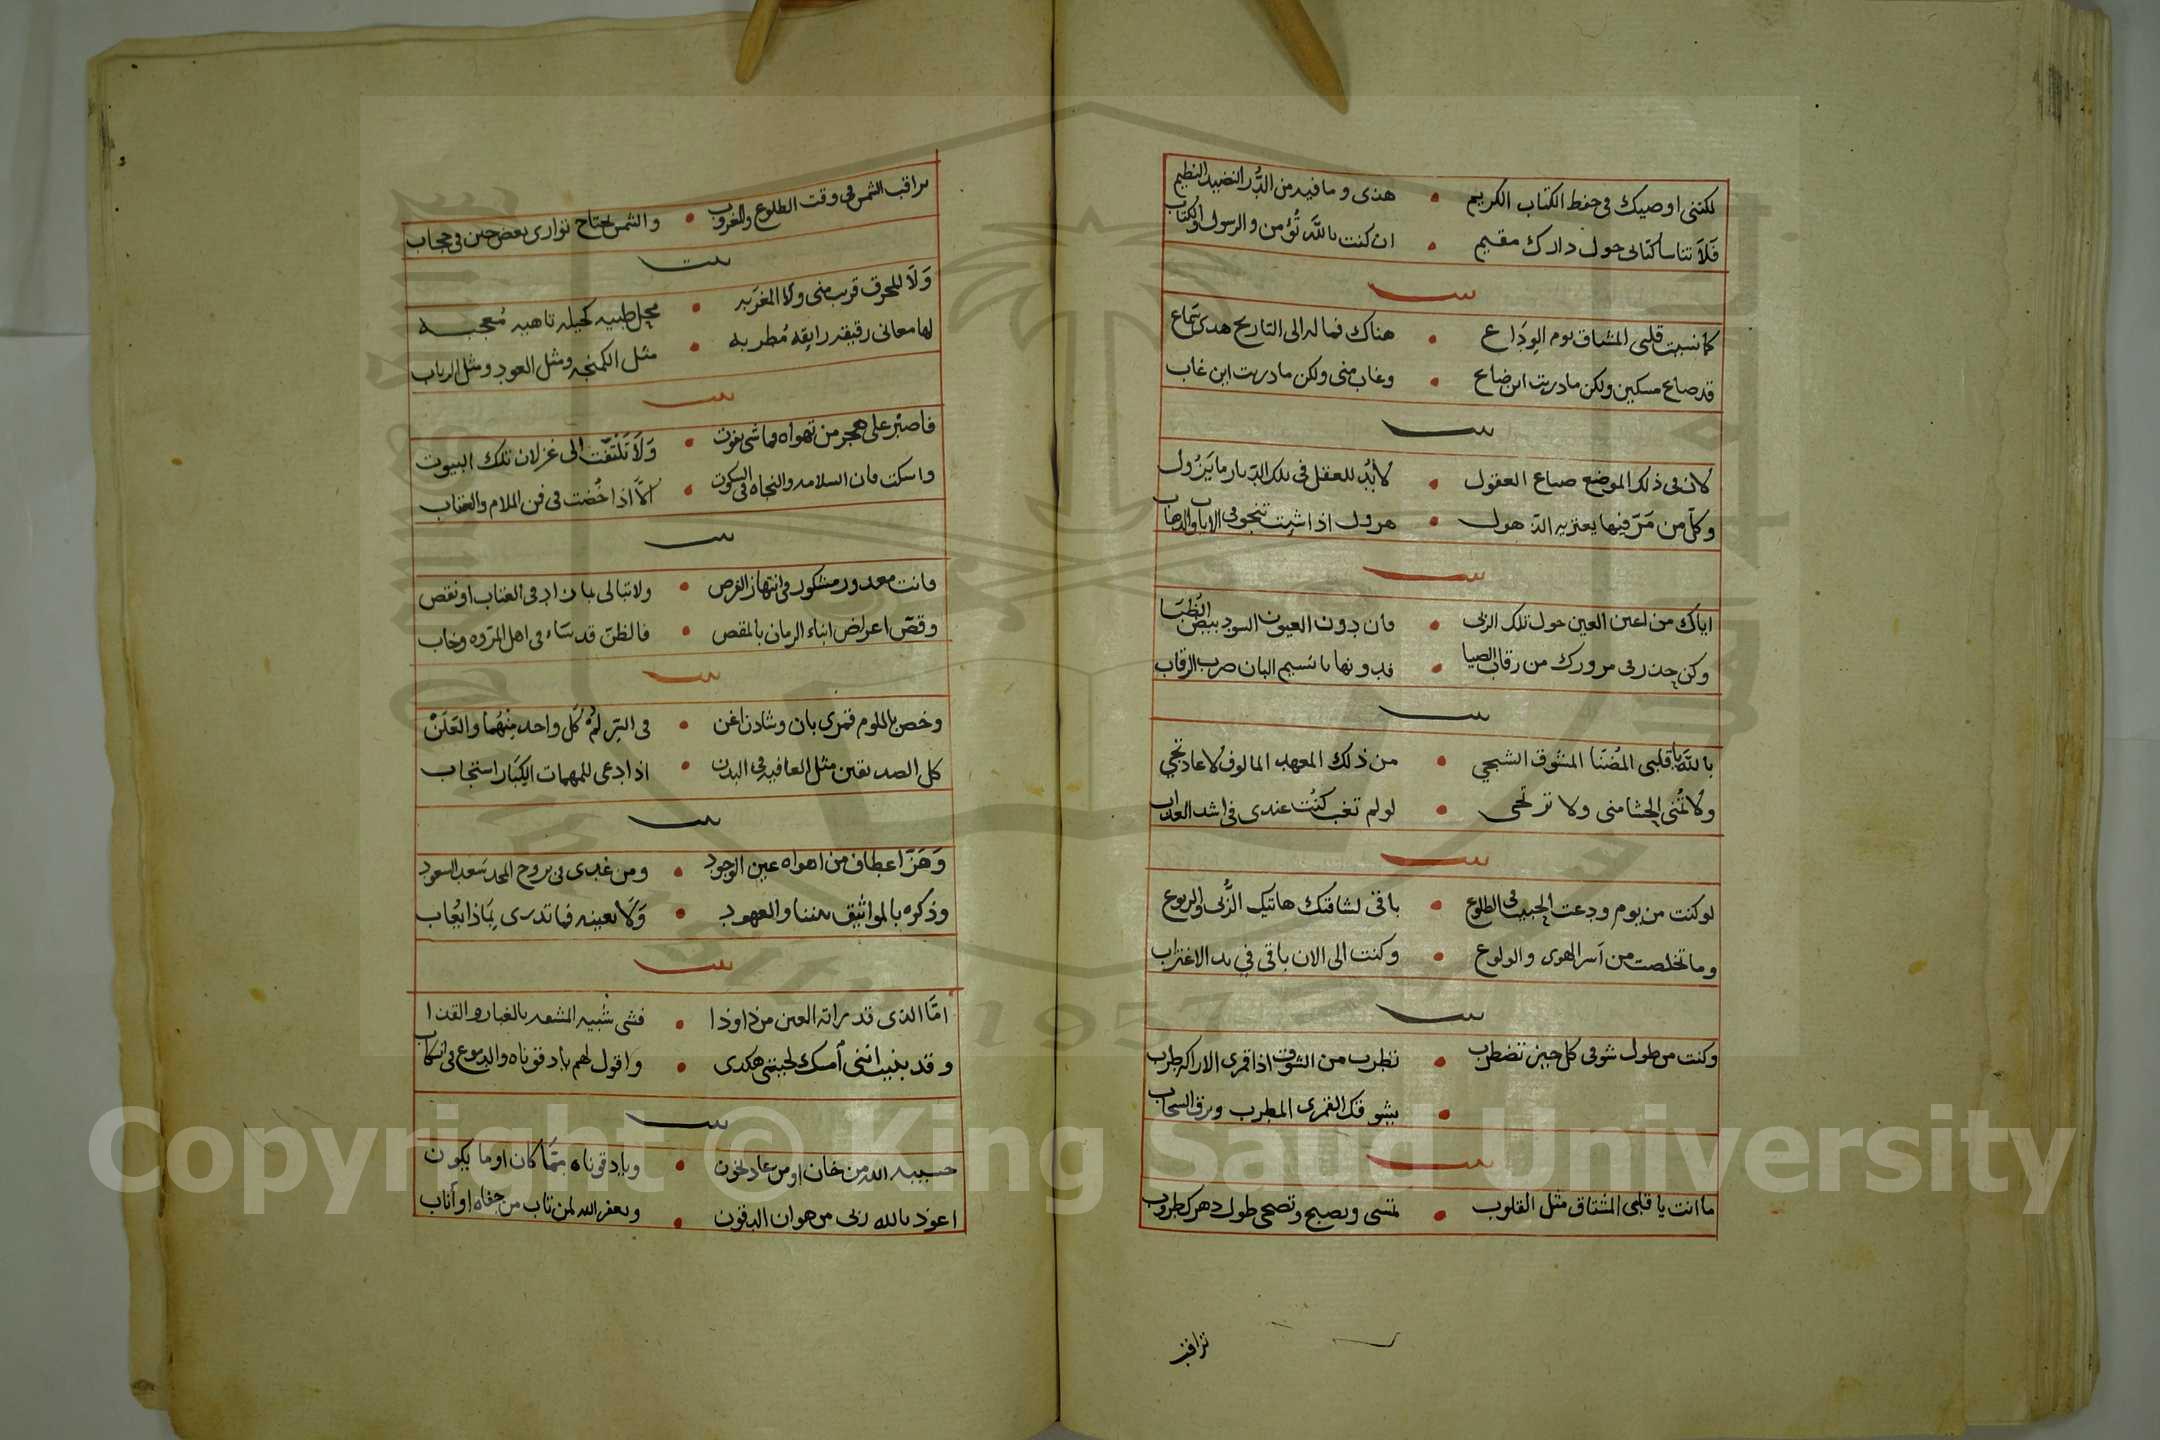 لكننى اوصيك فى حفظ الكتاب الكريم • هذى وما فيه من الدُّر النضيد النظيم
فَلاَ تناسا كتابى حول دارك مقيم • ان كنت بالله تُؤمن والرسول والكتاب
بيت
كما نسيت قلبى المشتاق يوم الوِدَاع • هناك فماله الى التاريخ هذى سماع
قد ضاع مسكين ولكن ما دريت اين ضاع • وغاب منى ولكن ما دريت اين غاب
بيت
لان فى ذلك الموضع ضياع العقول • لابُد للعقل فى تلك الديار ما يَزُول
وكل من مَرّ فيها يعتريه الذهول • هرول اذا شيت تنجو فى الاياب والذهاب
بيت
اياك من اعين العين حول تلك الربى • فان دون العيون السود بيض الظُبَا
وكن حذر فى مرورك من رقاب الصبا • فدونها يا نسيم البان ضرب الرقاب
بيت
بالله يا قلبى المُضنَا المشوق الشجي • من ذلك المعهد المالوف لا عاد تجي
ولا تُمنى الحشا منى ولا ترتجى • لولم تغب كنُت عندى فى اشد العذاب
بيت
لو كنت من يوم ودعت الحبيب فى الطلوع • باقى لشاقتك هاتيك الرُّبى والربوع
وما تخلصت من أسر الهوى والولوع • وكنت الى الان باقى في يد الاغتراب
بيت
وكنت من طول شوقى كل حين تضطرب • تطرب من الشوق اذا قمرى الاراك طرب
• يشوقك القمرى المطرب وبرق السحاب
بيت
ما انت يا قلبى المشتاق مثل القلوب • تمسى وتصبح وتضحى طول دهرك طروب
تراقب
تراقب الشمس فى وقت الطلوع والغروب • والشمس تحتاج توارى بعض حين فى حجاب
بيت
وَلاَ للحرف قرب منى ولا المغربه •
لها معانى رقيقه رايقه مُطربه • مثل الكمنجه ومثل العود ومثل الرباب
بيت
فاصبْر على هجر من تهواه فما شى يفوت • وَلاَ تَلتفت الى غزلان تلك البيوت
واسكت فان السلامه والنجاه فى السكوت • الاَّ اذا خُضت فى فن الملام والعتاب
بيت
فانت معذور مشكور فى انتهاز الفرص • ولا تبالى بان زاد فى العتاب او نقص
وقصّ اعراض ابناء الزمان بالمقص • فالظن قد ساء فى اهل المروه وخاب
بيت
وخص باللوم قمرى بان وشادن اغن • فى السّر لُمْ كل واحد منهُما والعَلَنْ
كل الصديقين مثل العافيه فى البدن • اذا دعى للمهمات الكِبَار استجاب
بيت
وَهَزّ اعطاف من اهواه عين الوجود • ومن غدى فى بروج المجد سَعد السعود
وذكره بالمواثيق بيننا والعهود • وَلاَ تعيبه فما تدرى بِمَاذا يُعاب
بيت
امَّا الذى قد راته العين من ذا وذا • فشى شبيه المشعر بالغبار والقذا
وقد بقيت اننى اُمسك لحيتى هكذى • واقول لهم يا دقوناه والدموع فى انسكاب
بيت
حسيبه الله من خان او من عاد يخون • ويا دقوناه مِمَّا كان او ما يكون
اعوذ بالله ربى من هوان الدقون • ويغفر الله لمن تاب من جفاه او أناب
Copyright © King Saud University
1957